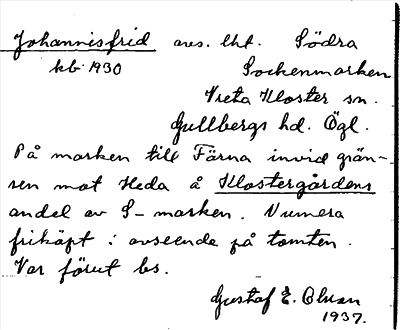 Johannisfrid avs. lht. Södra
kb 1930 Sockenmarken
Vreta Kloster sn.
Gullbergs hd. Ögl.
På marken till Färna invid grän-
sen mot Heda å Klostergårdens
andel av S-marken. Numera
friköpt i avseende på tomten.
Var förut bs.
Gustaf E. Olson
1937.